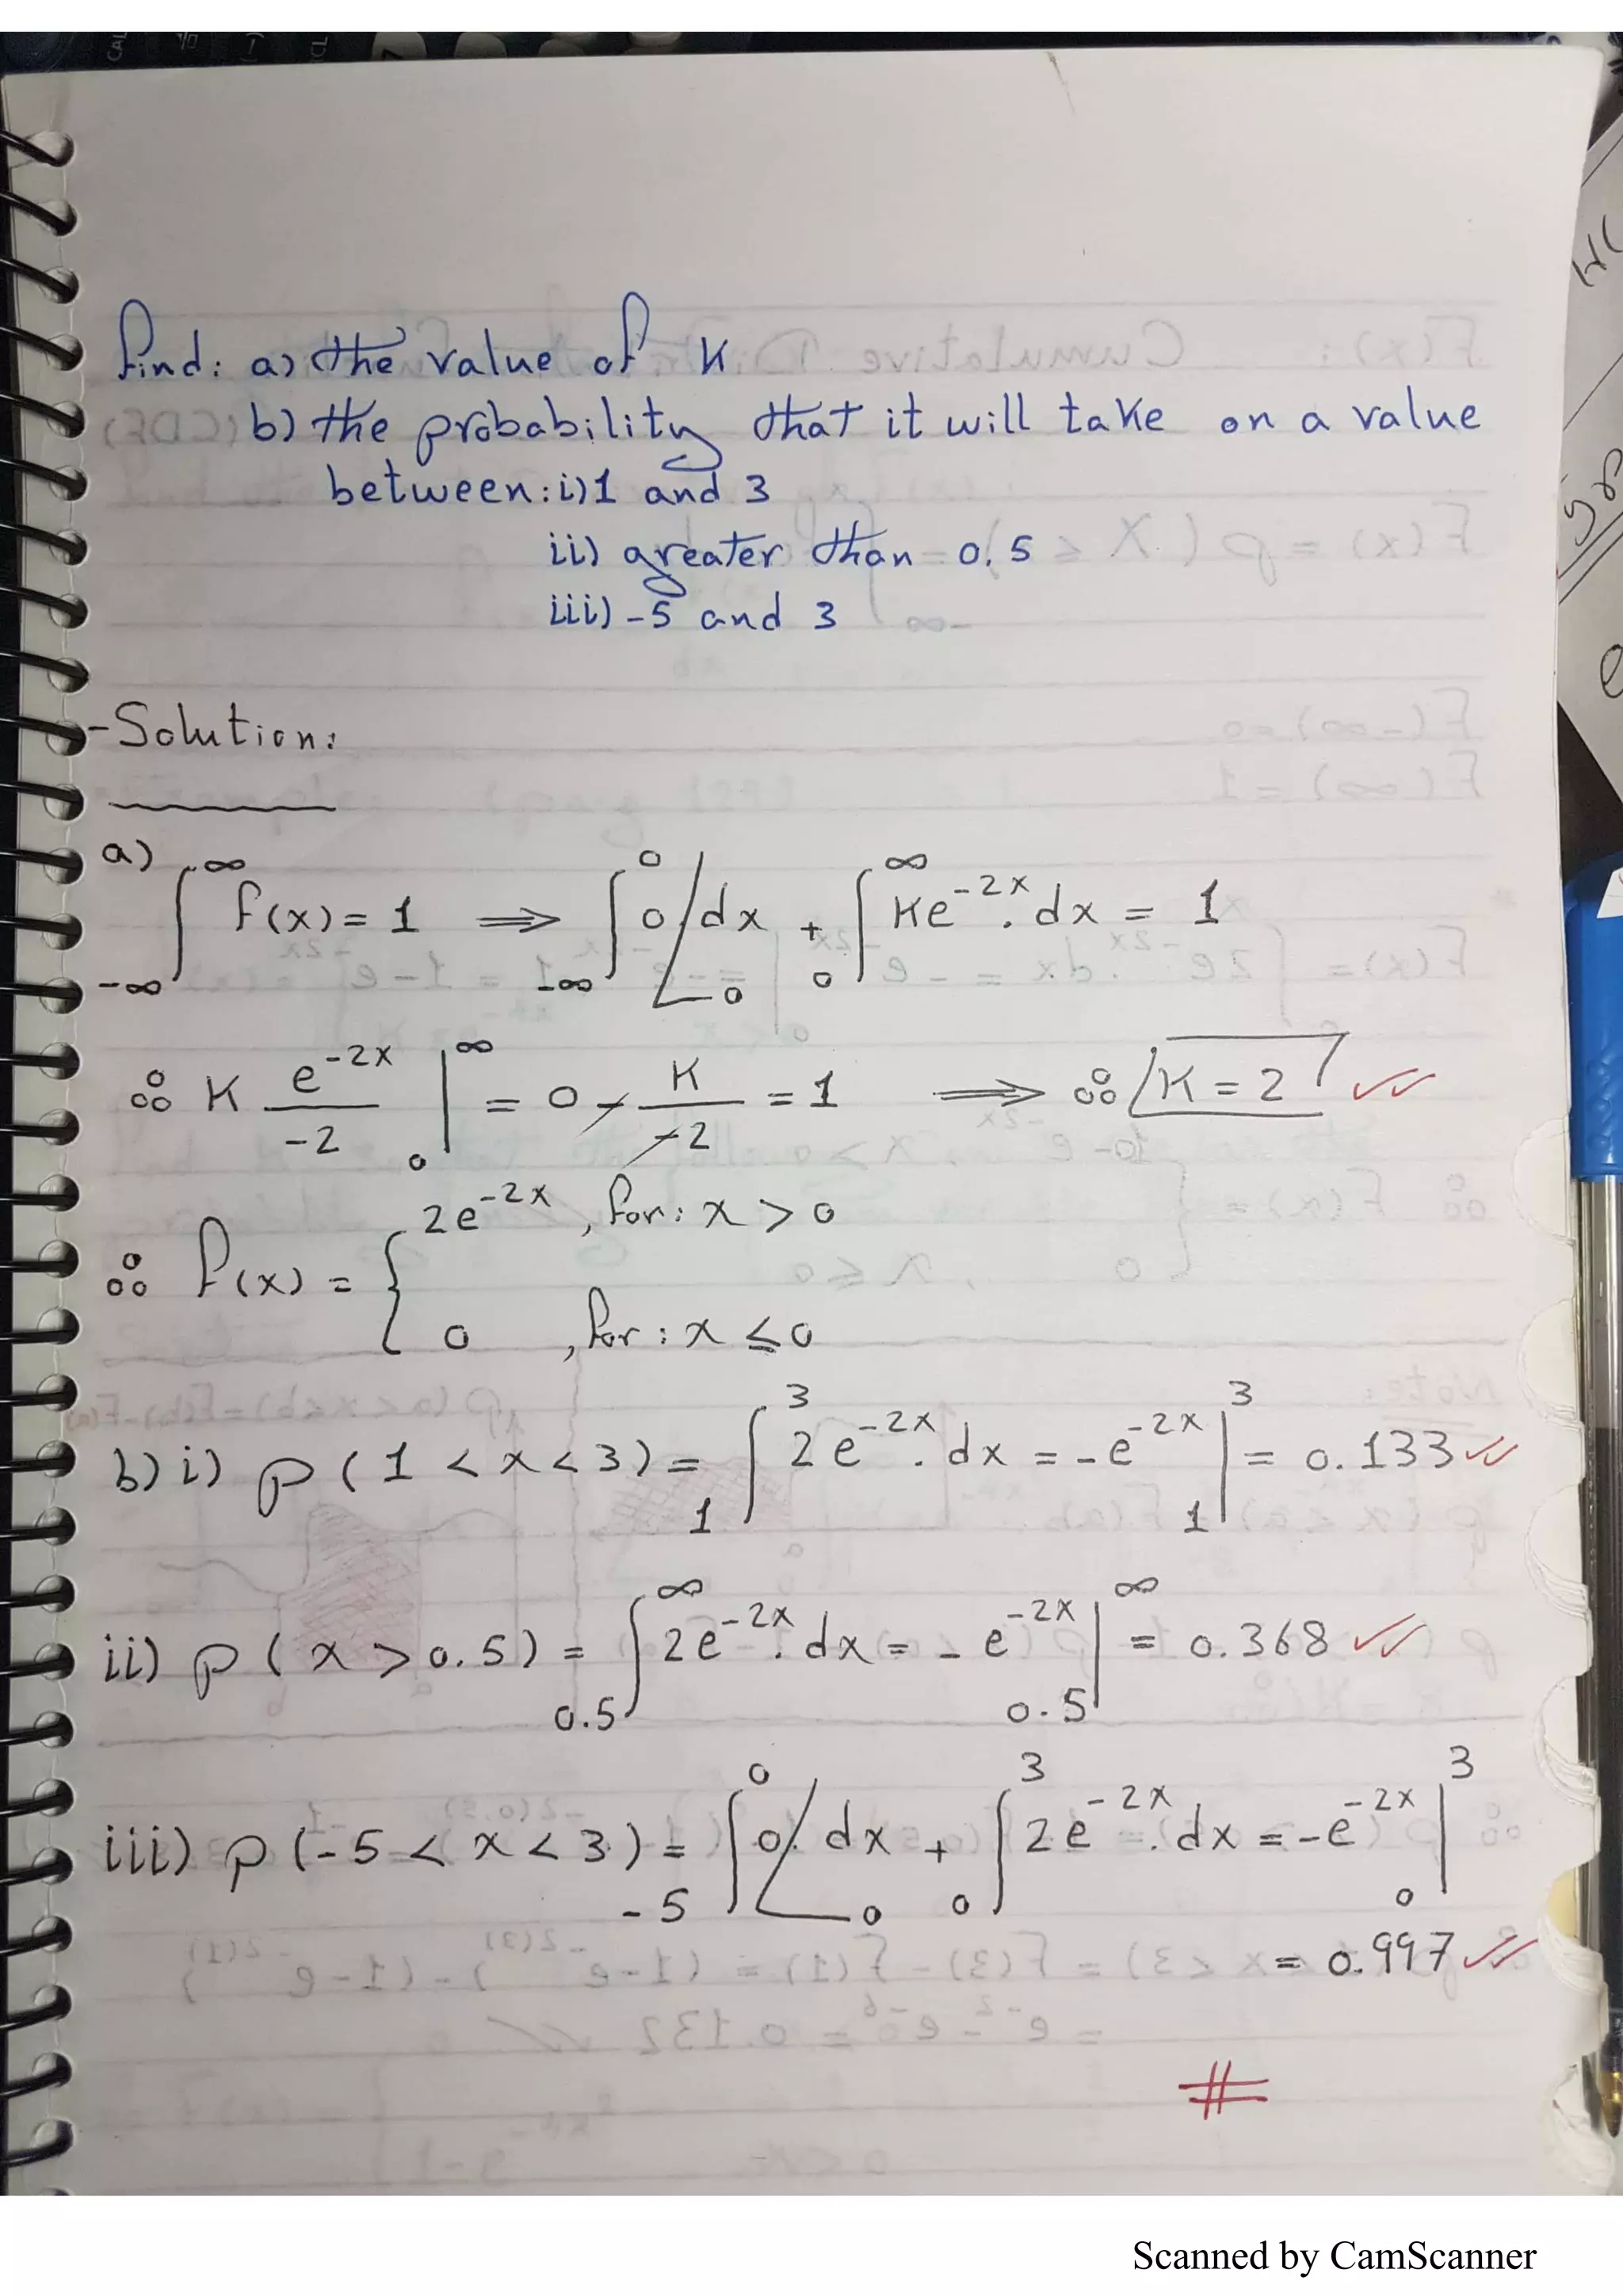 find: a) the value of K
b) the probability that it will take on a value
between: i) 1 and 3
ii) greater than 0.5
iii) -5 and 3
- Solution:
a) ∫_{-∞}^{∞} f(x) = 1 ⟹ ∫_{-∞}^{0} 0 dx + ∫_{0}^{∞} Ke^{-2x}.dx = 1
∴ K e^{-2x}/-2 |_{0}^{∞} = 0 - K/-2 = 1 ⟹ ∴ K = 2 ✓✓
∴ f(x) = { 2e^{-2x}, for: x > 0
0 , for: x ≤ 0
b) i) p(1 < x < 3) = ∫_{1}^{3} 2e^{-2x}.dx = -e^{-2x} |_{1}^{3} = 0.133 ✓✓
ii) p(x > 0.5) = ∫_{0.5}^{∞} 2e^{-2x}.dx = -e^{-2x} |_{0.5}^{∞} = 0.368 ✓✓
iii) p(-5 < x < 3) = ∫_{-5}^{0} 0.dx + ∫_{0}^{3} 2e^{-2x}.dx = -e^{-2x} |_{0}^{3}
= 0.997 ✓✓
#
Scanned by CamScanner